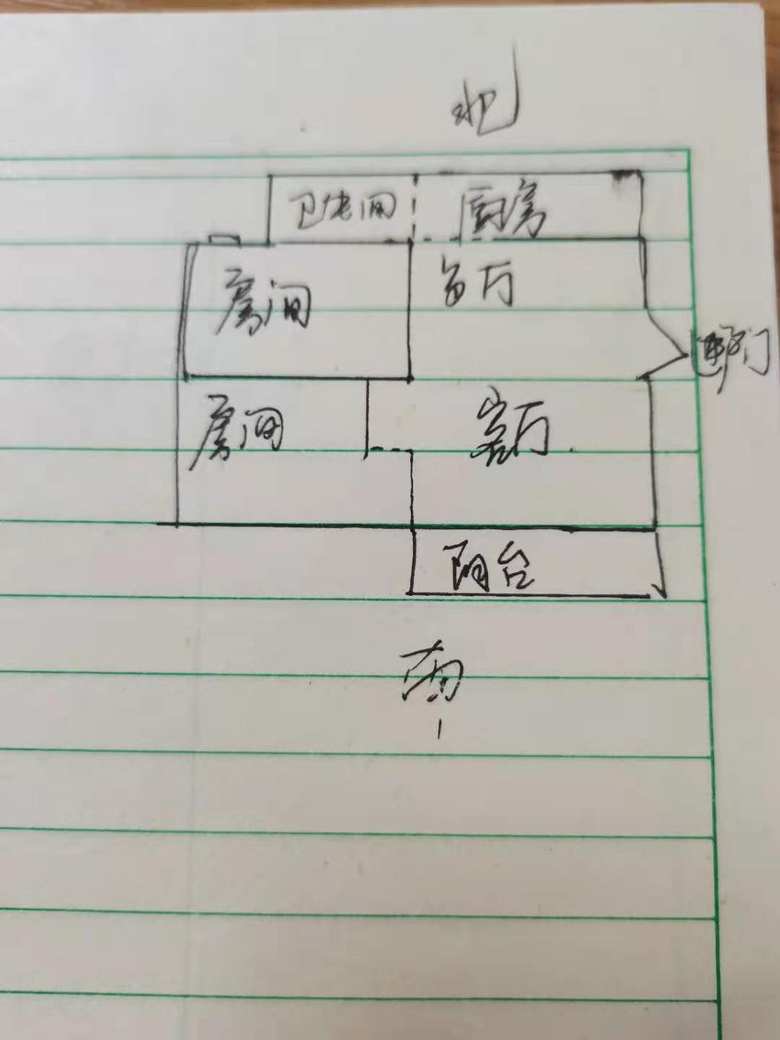 北
卫生间
厨房
房间
客厅
进门
房间
客厅
阳台
南